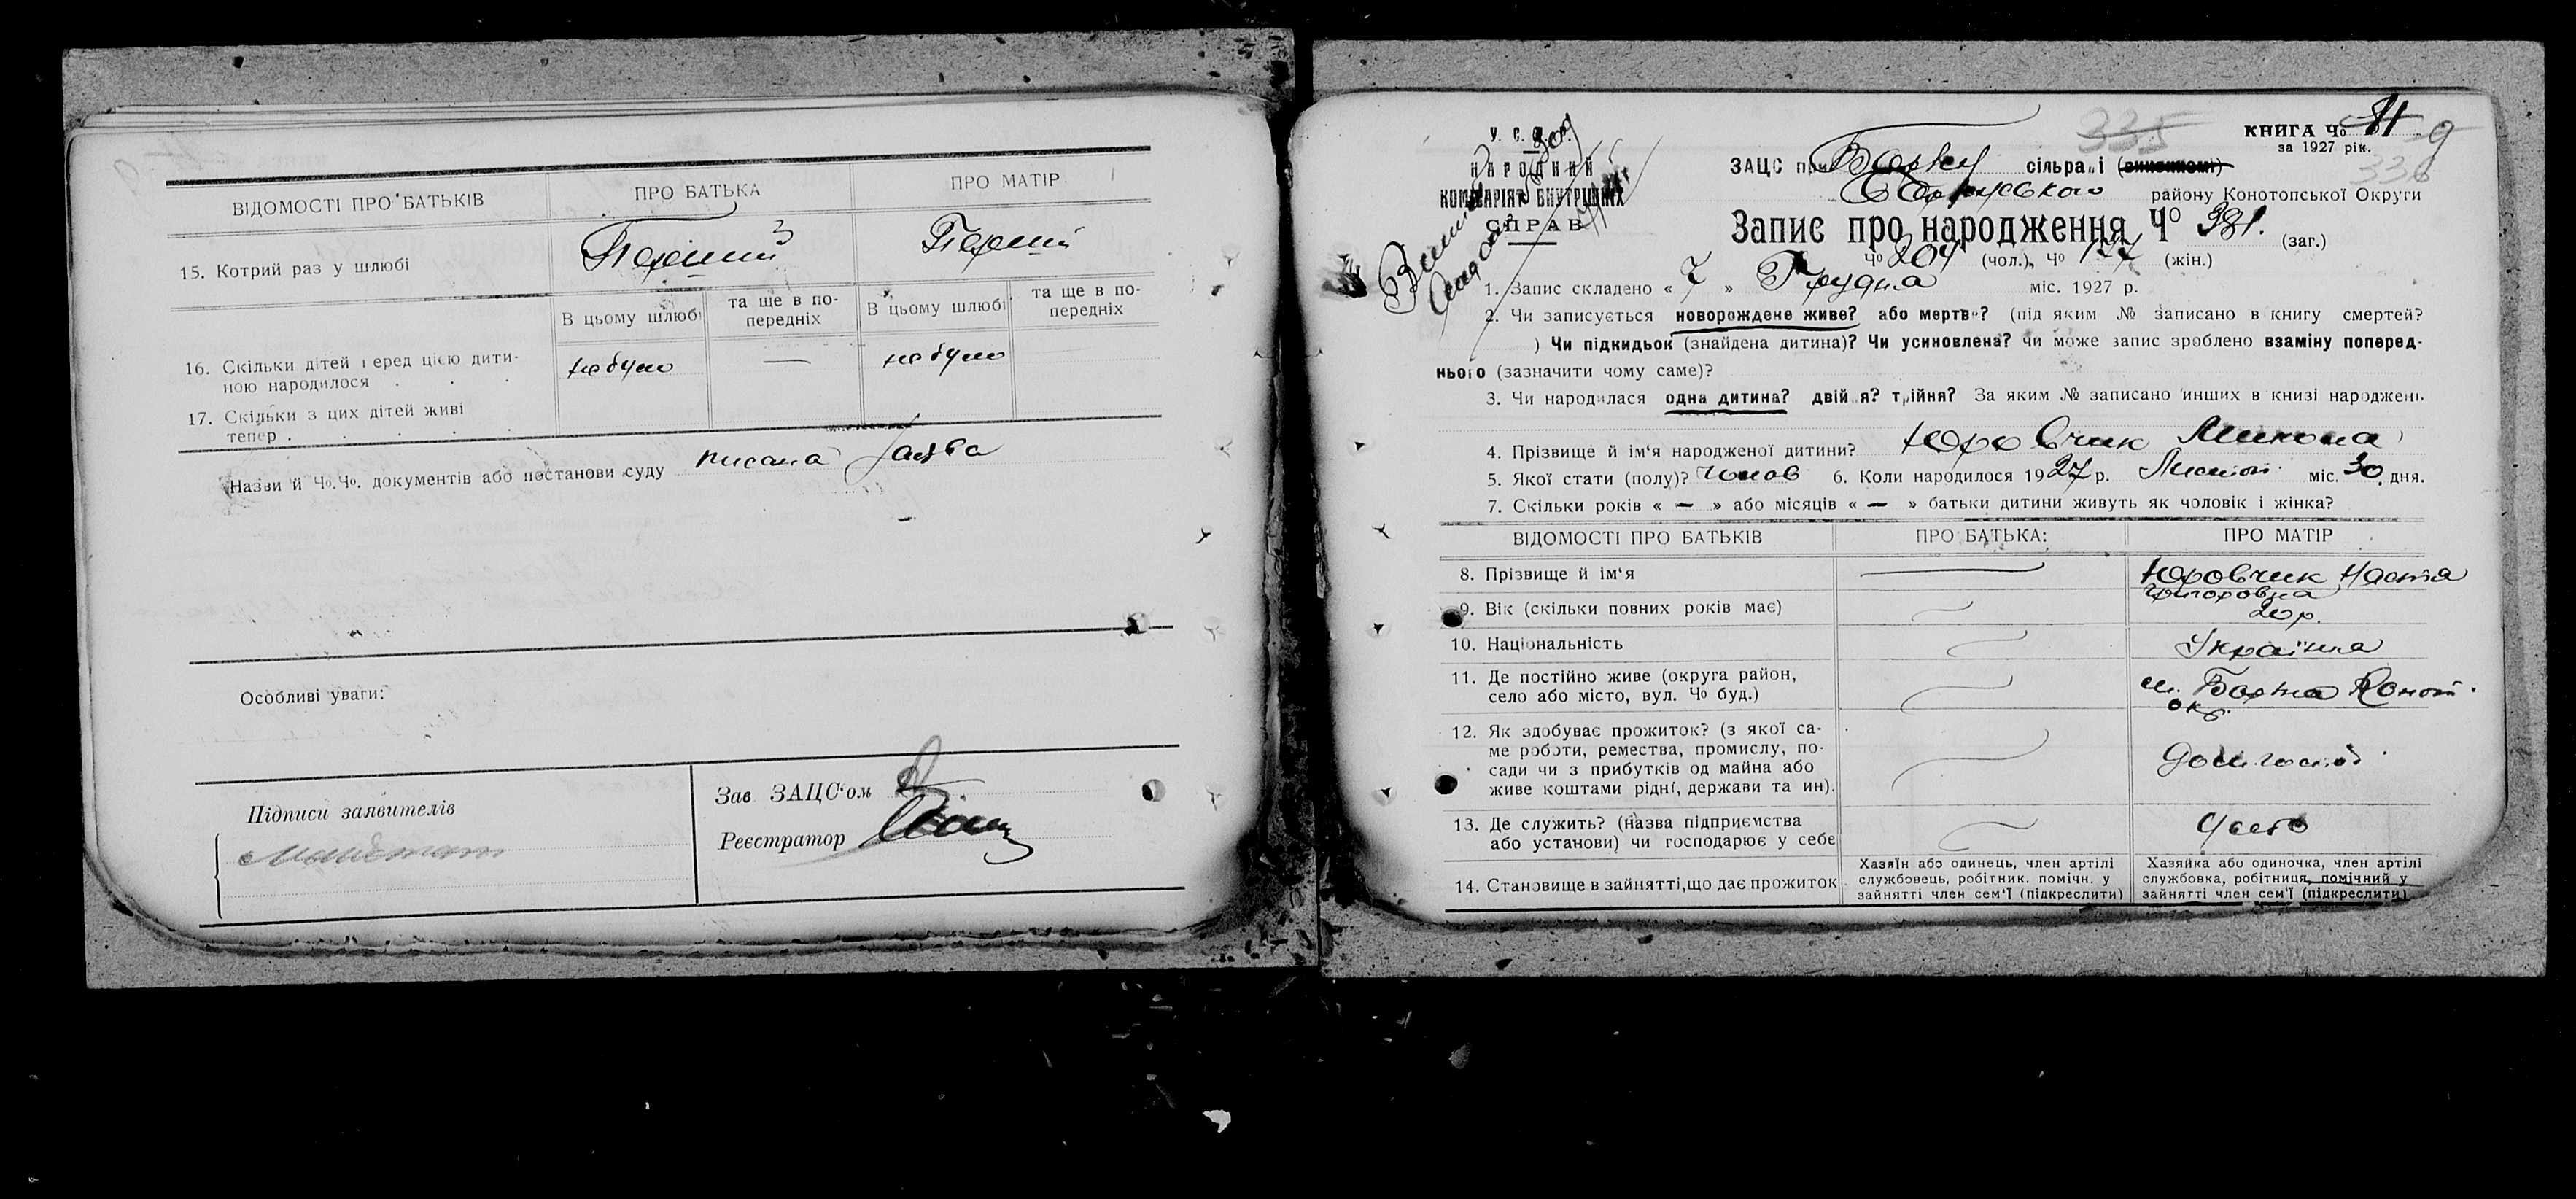 ВІДОМОСТІ ПРО БАТЬКІВ
ПРО БАТЬКА
ПРО МАТІР
15. Котрий раз у шлюбі
Перший
Перший
В цьому шлюбі
та ще в по-
передніх
В цьому шлюбі
та ще в по-
передніх
16. Скільки дітей перед цією дити-
ною народилося . . .
не було
—
не було
17. Скільки з цих дітей живі
тепер . . . . .
Назви й Ч.о Ч.о документів або постанови суду писана заява
Особливі уваги:
Підписи заявителів
Зав ЗАЦС'ом
Реєстратор
У. С. Р. Р.
НАРОДНИЙ
КОМІСАРІЯТ ВНУТРІШНІХ
СПРАВ
335
КНИГА Чо 11
за 1927 рік.
9
336
ЗАЦС при Борзн сільраді (виконкомі)
Борзенського району Конотопської Округи
Запис про народження Чо 331. (заг.)
Чо 204 (чол.), Чо 127 (жін.)
1. Запис складено « 7 » Грудня міс. 1927 р.
2. Чи записується новорождене живе? або мертве? (під яким № записано в книгу смертей?
) Чи підкидьок (знайдена дитина)? Чи усиновлена? чи може запис зроблено взаміну поперед-
нього (зазначити чому саме)?
3. Чи народилася одна дитина? двійня? трійня? За яким № записано инших в книзі народжень
4. Прізвище й ім'я народженої дитини? Юровчик Микола
5. Якої стати (полу)? Чолов 6. Коли народилося 1927 р. Листоп. міс. 30 дня.
7. Скільки років « — » або місяців « — » батьки дитини живуть як чоловік і жінка?
ВІДОМОСТІ ПРО БАТЬКІВ
ПРО БАТЬКА:
ПРО МАТІР
8. Прізвище й ім'я
Юровчик Настя
Григоровна
9. Вік (скільки повних років має)
20 р.
10. Національність
Українка
11. Де постійно живе (округа район,
село або місто, вул. Чо буд.)
м. Борзна Коноп.
окр.
12. Як здобуває прожиток? (з якої са-
ме роботи, ремества, промислу, по-
сади чи з прибутків од майна або
живе коштами рідні, держави та ин).
дом. господ.
13. Де служить? (назва підприємства
або установи) чи господарює у себе
У себе
14. Становище в зайнятті, що дає прожиток
Хазяїн або одинець, член артілі
службовець, робітник. помічн. у
зайнятті член сем'ї (підкреслити)
Хазяйка або одиночка, член артілі
службовка, робітниця, помічний у
зайнятті член сем'ї (підкреслити)